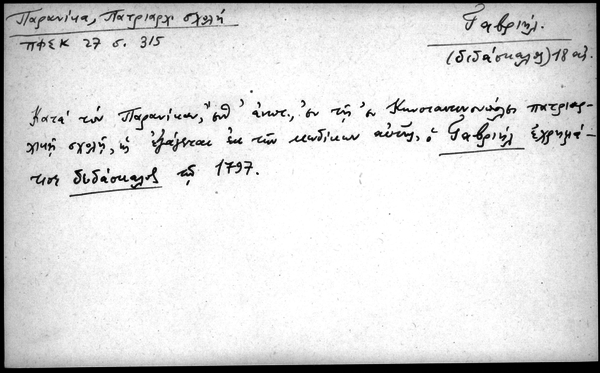 Παρανίκα, Πατριαρχ. σχολή
ΠΦΣΚ 27 σ. 315
Γαβριήλ.
(διδάσκαλος) 18 αἰ.
Κατὰ τὸν Παρανίκαν, ἐν τῇ ἐν Κωνσταντινουπόλει πατριαρ-
χικῇ σχολῇ, ὡς ἐξάγεται ἐκ τῶν κωδίκων αὐτῆς, ὁ Γαβριήλ ἐχρημά-
τισε διδάσκαλος τῷ 1797.